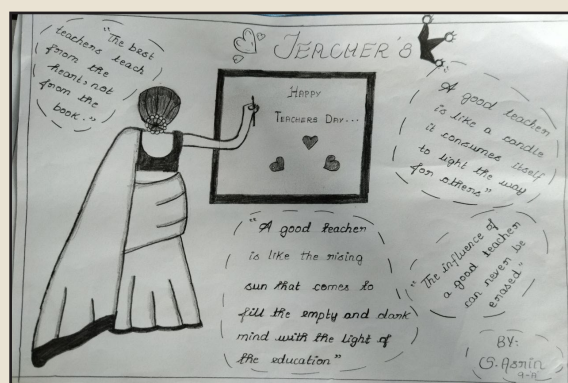 TEACHER'S
"The best
teachers teach
from the
heart, not
from the
book."
HAPPY
TEACHERS DAY...
"A good teacher
is like a candle
it consumes itself
to light the way
for others"
"A good teacher
is like the rising
sun that comes to
fill the empty and dark
mind with the light of
the education"
"The influence of
a good teacher
can never be
erased"
BY:
G. Asrin
9-A